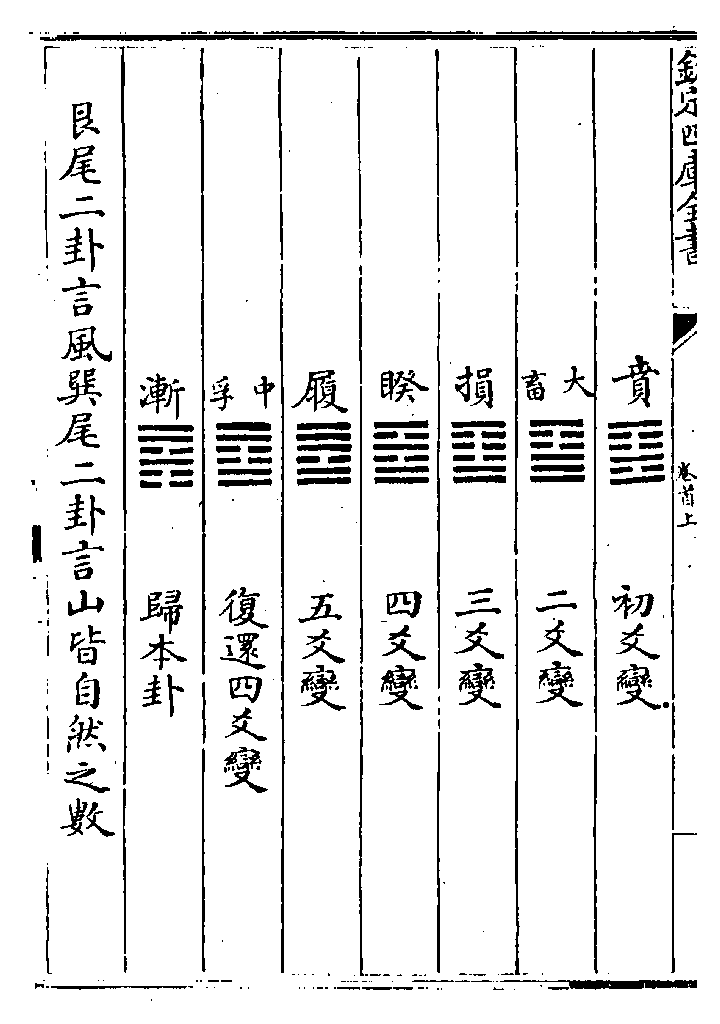 欽定四庫全書
卷首上
賁 初爻變
大畜 二爻變
損 三爻變
睽 四爻變
履 五爻變
中孚 復還四爻變
漸 歸本卦
艮尾二卦言風巽尾二卦言山皆自然之數